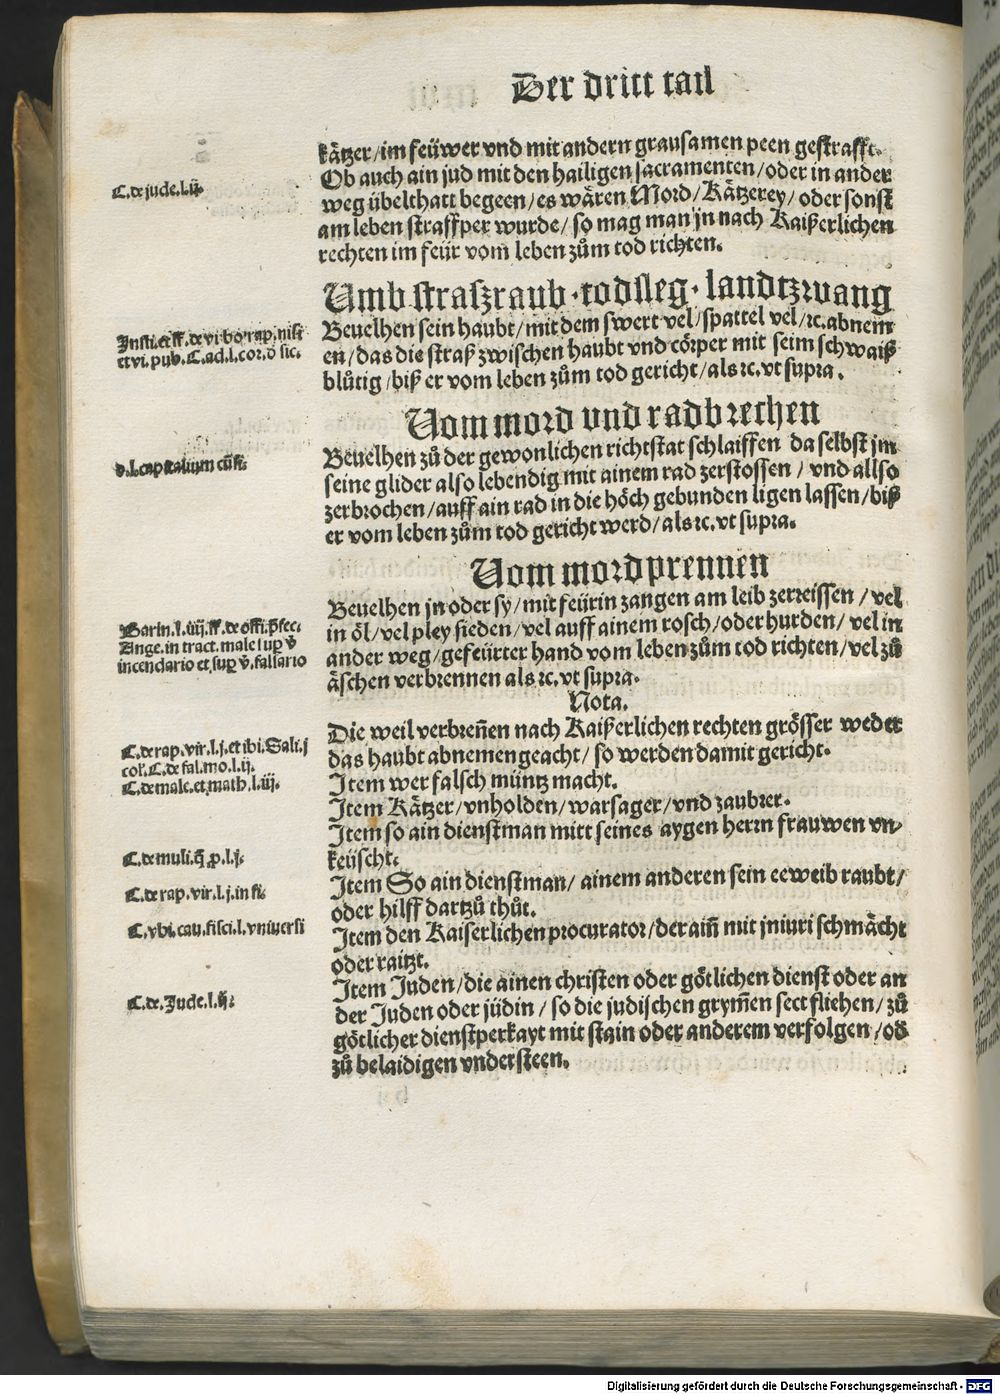 Der dritt tail
kätzer/im feüwer vnd mit andern grausamen peen gestrafft.
Ob auch ain jud mit den hailigen sacramenten/oder in ander
C. de jude. l. ij.
weg übelthatt begeen/es wären Mord/Kätzerey/oder sonst
am leben straffper wurde/so mag man jn nach Kaißerlichen
rechten im feür vom leben zům tod richten.
Umb straszraub·todsleg·landtzwang
Beuelhen sein haubt/mit dem swert vel/spattel vel/⁊c.abnem
Insti. et ff. de vi bo rap. nisi
et vi. pub. C. ad. l. cor. d̄ sic.
en/das die straß zwischen haubt vnd cörper mit seim schwaiß
blůtig/biß er vom leben zům tod gericht/als ⁊c. vt supra.
Vom mord vnd radbrechen
Beuelhen zů der gewonlichen richtstat schlaiffen da selbst jm
d. l. capitalium
seine glider also lebendig mit ainem rad zerstossen/vnd allso
zerbrochen/auff ain rad in die höch gebunden ligen lassen/biß
er vom leben zům tod gericht werd/als ⁊c. vt supra.
Vom mordprennen
Beuelhen jn oder sy/mit feürin zangen am leib zerreissen/vel
in öl/vel pley sieden/vel auff ainem rosch/oder hurden/vel in
ander weg/gefeürter hand vom leben zům tod richten/vel zů
äschen verbrennen als ⁊c. vt supra.
Barin. l. iiij. ff. de offi. p̄fec.
Ange. in tract. male
incendario et
fallario
Nota.
Die weil verbreñen nach Kaißerlichen rechten grösser weder
das haubt abnemen geacht/so werden damit gericht.
C. de rap. vir. l. j. et ibi. Sali. j
col. C. de fal. mo. l. ij.
Item wer falsch müntz macht.
C. de male. et math. l. iij.
Item Kätzer/vnholden/warsager/vnd zaubrer.
Item so ain dienstman mitt seines aygen herrn frauwen vn-
keüscht.
C. de muli. q̄. p. l. j.
Item So ain dienstman/ainem anderen sein eeweib raubt/
C. de rap. vir. l. j. in fi.
oder hilff dartzů thůt.
Item den Kaiserlichen procurator/der aiñ mit jniuri schmächt
C. vbi. cau. fisci. l. vniuersi
oder raitzt.
Item Juden/die ainen christen oder götlichen dienst oder an
C. de. Jude. l. ij.
der Juden oder jüdin/so die judischen grym̄en sect fliehen/zů
götlicher dienstperkayt mit stain oder anderem verfolgen/od
zů belaidigen vndersteen.
Digitalisierung gefördert durch die Deutsche Forschungsgemeinschaft - DFG